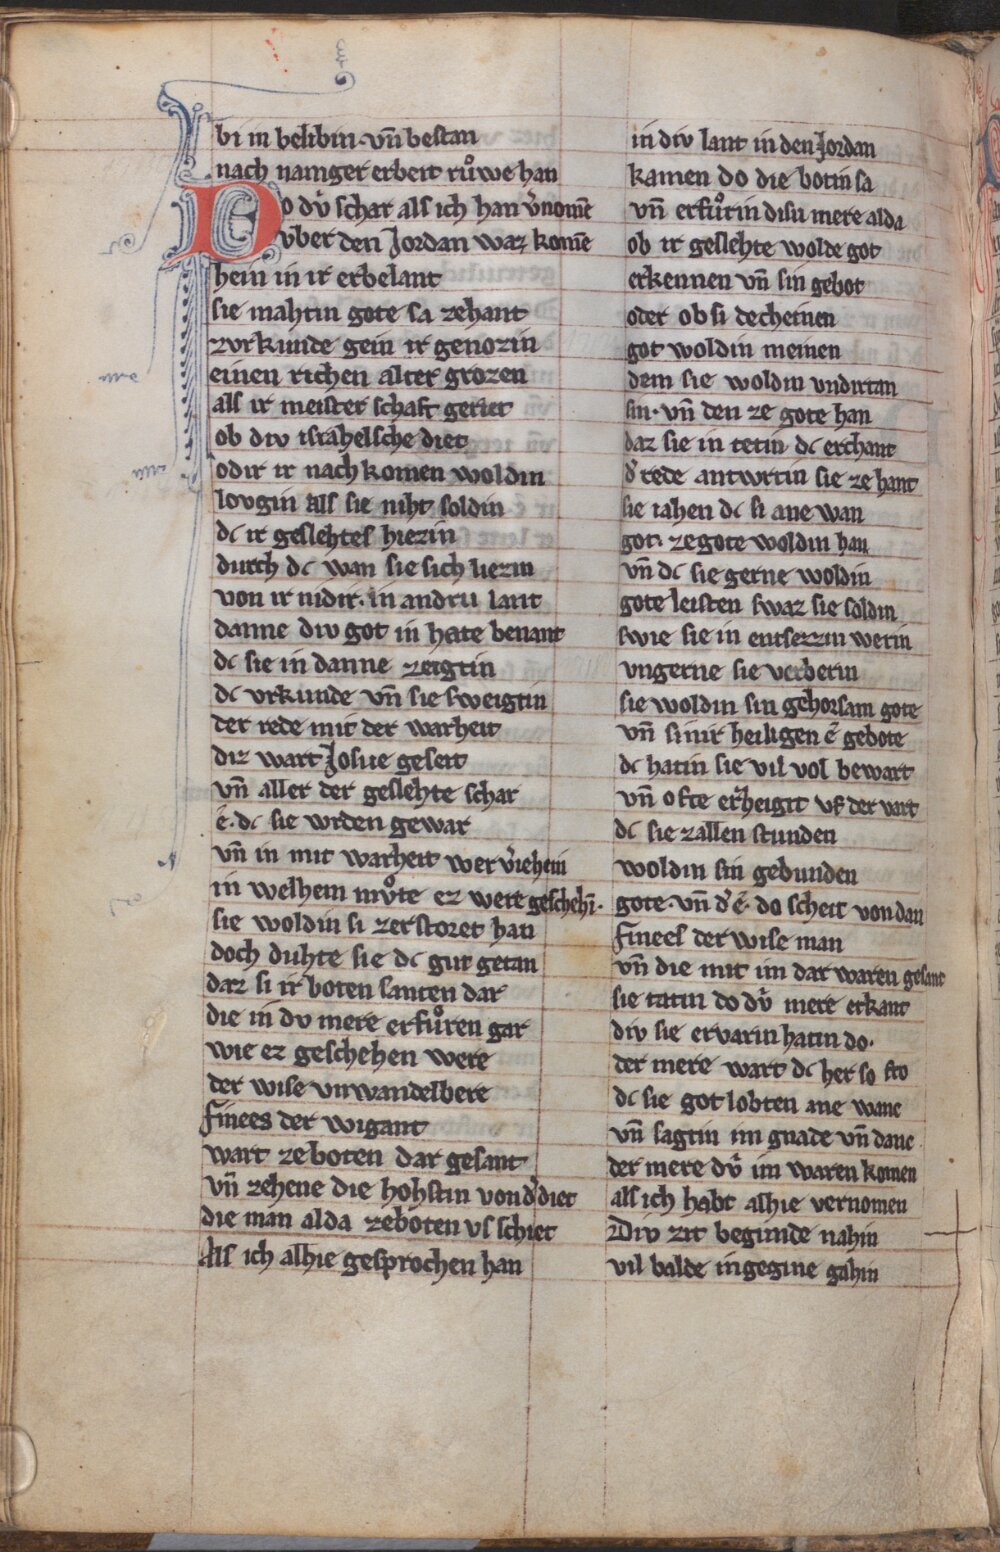 bi in belibin· vn̄ bestan
nach manger erbeit růwe han
Do dv̓ schar als ich han v̓nomē
vber den Jordan waz komē
hein in ir erbelant
sie mahtin gote sa zehant
zvrkunde gein ir genozin
einen richen alter grozen
als ir meister schaft geriet
ob div israhelsche diet
odir ir nach komen woldin
lovgin als sie niht soldin
dc ir geslehtes hiezin
durch dc wan sie sich liezin
von ir nidir· in andru lant
danne div got in hate benant
dc sie in danne zeigtin
dc vrkunde vn̄ sie sweigtin
der rede mit der warheit
diz wart Josue geseit
vn̄ aller der geslehte schar
é· dc sie wrden gewar
vn̄ in mit warheit wer v̓iehein
in welhem mv̊te ez were geschehī·
sie woldin si zerstoret han
doch duhte sie dc gut getan
daz si ir boten santen dar
die in dv mere erfůren gar
wie ez geschehen were
der wise vnwandelbere
finees der wigant
wart zeboten dar gesant
vn̄ zehene die hohstin von d̓ diet
die man alda zeboten vs schiet
Als ich alhie gesprochen han
in div lant in den Jordan
kamen do die botin sa
vn̄ erfůrin disu mere alda
ob ir geslehte wolde got
erkennen vn̄ sin gebot
oder ob si decheinen
got woldin meinen
dem sie woldin vndirtan
sin· vn̄ den ze gote han
daz sie in tetin dc erchant
d̓ rede antwrtin sie ze hant
sie iahen dc si ane wan
got· zegote woldin han
vn̄ dc sie gerne woldin
gote leisten swaz sie soldin
swie sie in entsezzin werin
vngerne sie verberin
sie woldin sin gehorsam gote
vn̄ sinir heiligen é gebote
dc hatin sie vil vol bewart
vn̄ ofte erzheigit vf der vart
dc sie zallen stunden
woldin sin gebunden
gote· vn̄ d̓ é· do scheit von dan
finees der wise man
vn̄ die mit im dar waren gesant
sie tatin do dv̓ mere erkant
div sie ervarin hatin do·
der mere wart dc her so fro
dc sie got lobten ane wane
vn̄ sagtin im gnade vn̄ danc
der mere dv̓ im waren komen
als ich habt alhie vernomen
Div zit begunde nahin
vil balde ingegine gahin